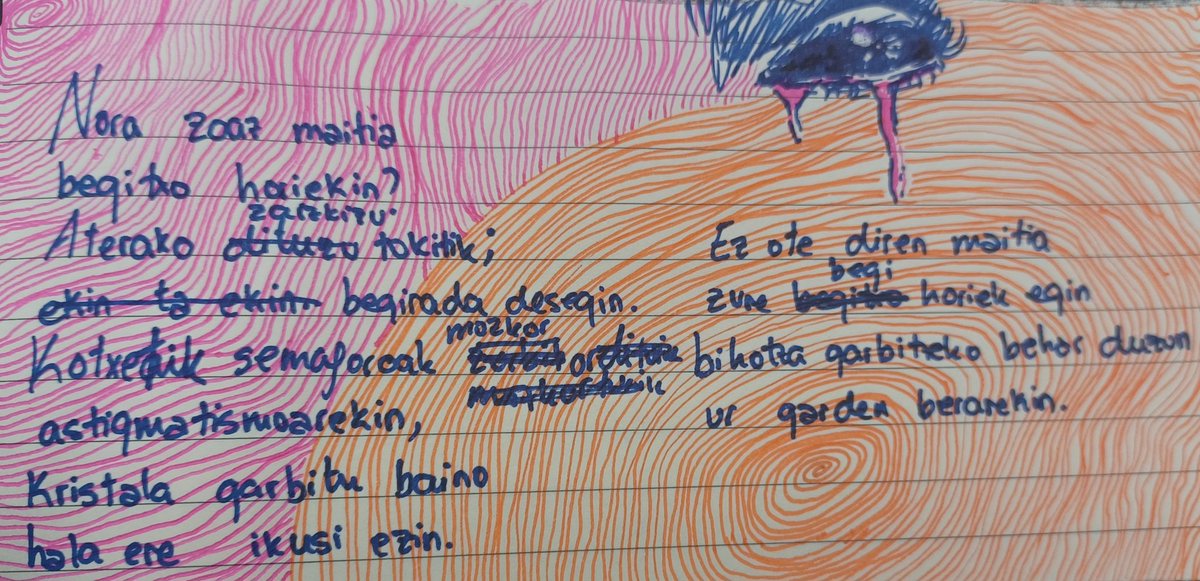 Nora zoaz maitia
begitxo horiekin?
Aterako zaizkizu tokitik;
begirada desegin.
Kotxetik semaforoak mozkor
astigmatismoarekin,
Kristala garbitu baino
hala ere ikusi ezin.
Ez ote diren maitia
zure begi horiek egin
bihotza garbitzeko behar duzun
ur garden berarekin.